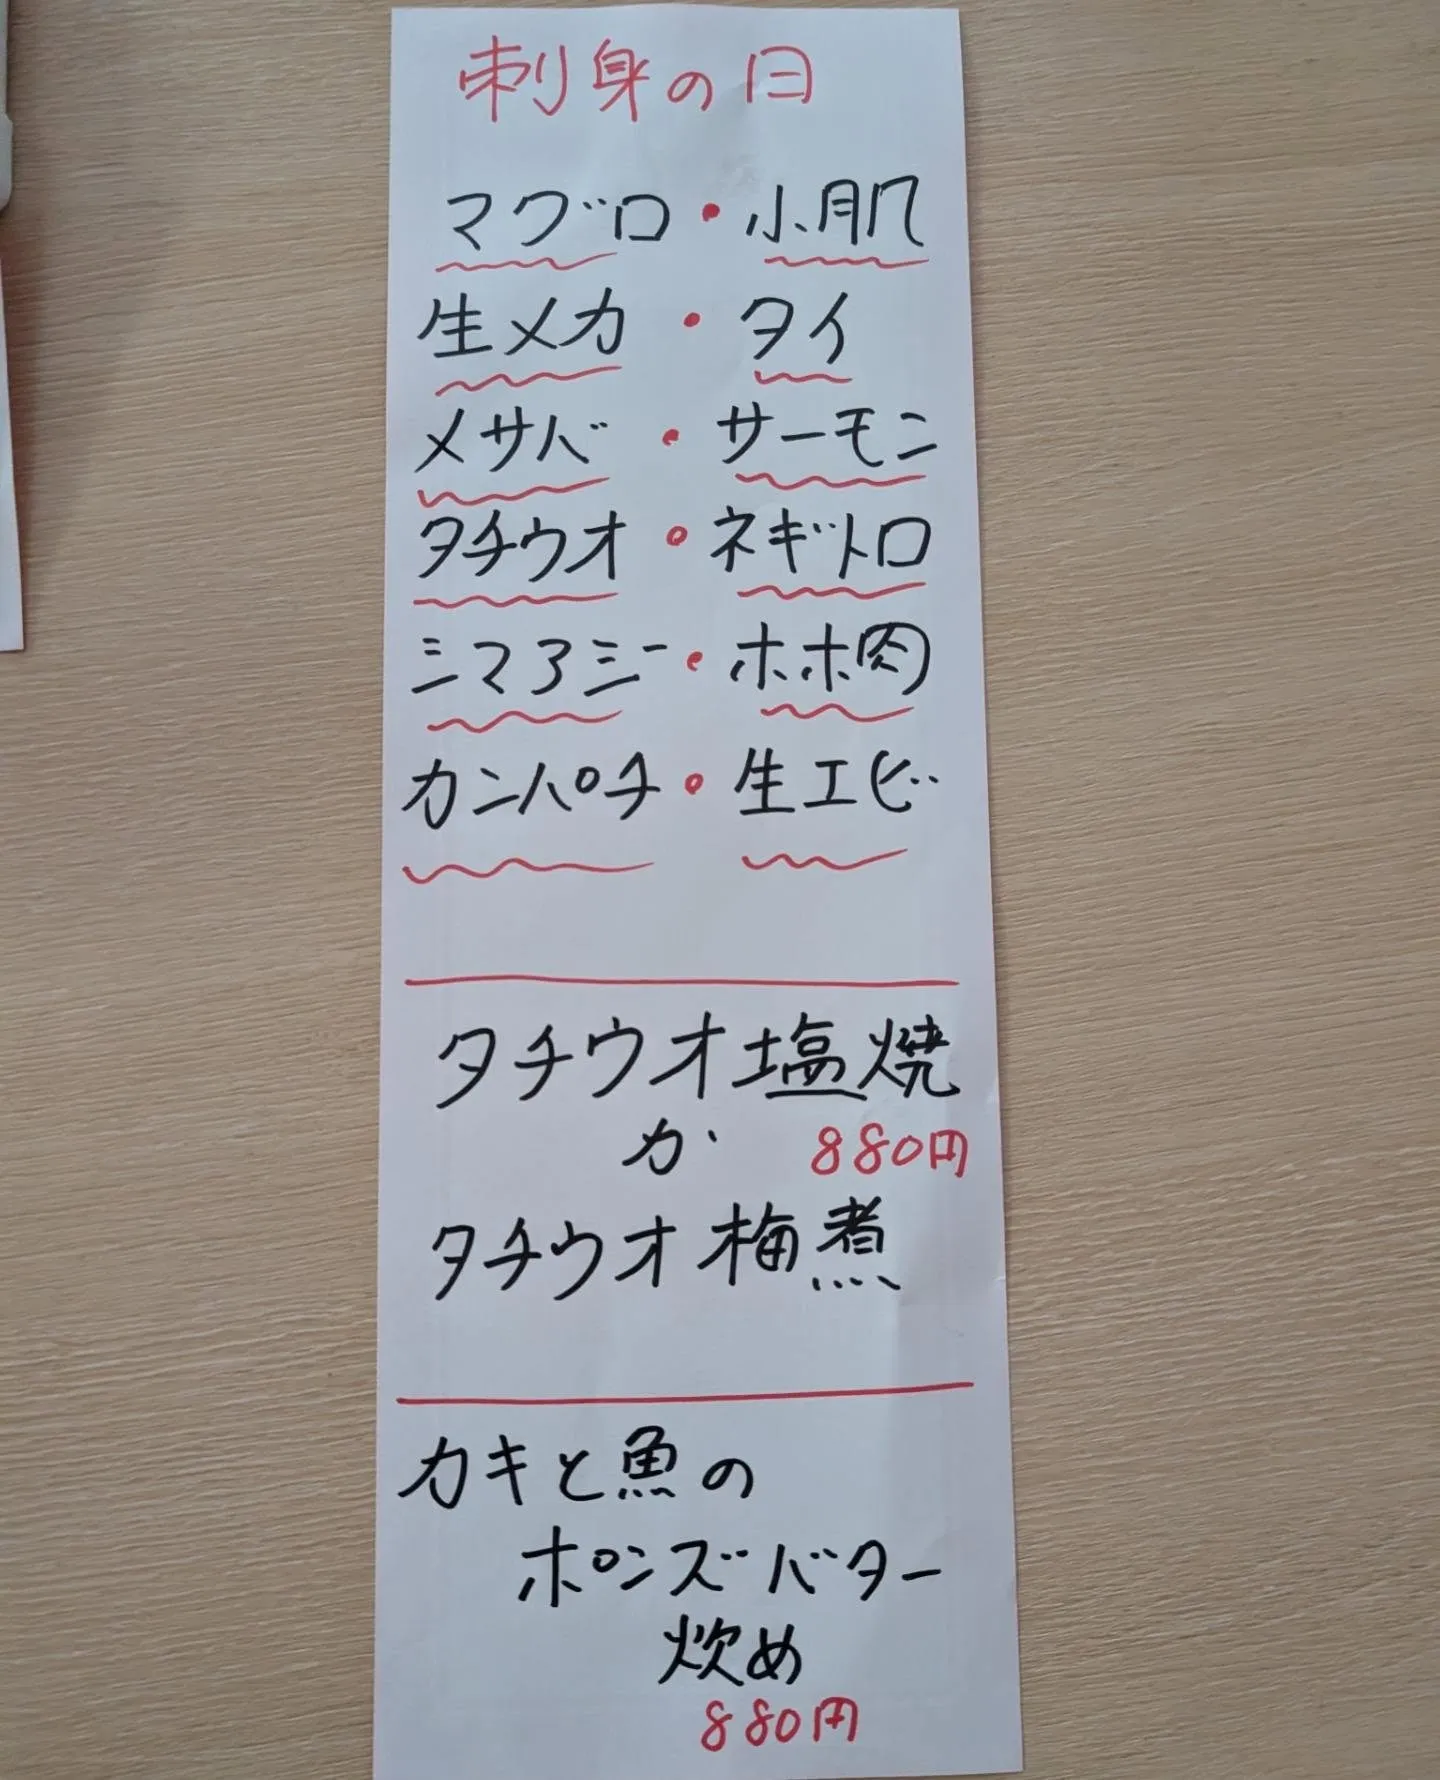 刺身の日
マグロ・小肌
生メカ・タイ
メサバ・サーモン
タチウオ・ネギトロ
シマアジー・ホホ肉
カンパチ・生エビ
タチウオ塩焼
か 880円
タチウオ梅煮
カキと魚の
ポンズバター
炒め
880円